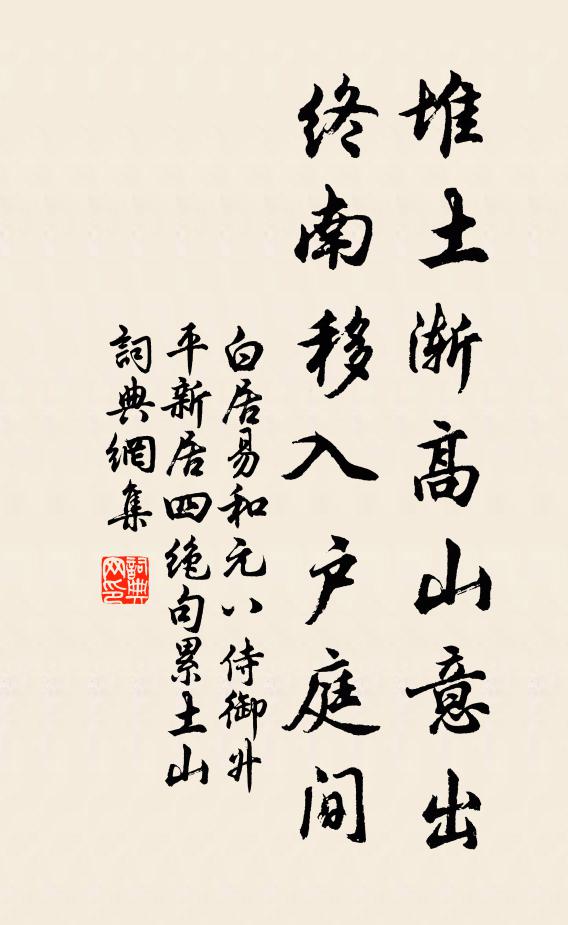 堆土渐高山意出
终南移入户庭间
白居易和元八侍御升
平新居四绝句累土山
詞典網集
詞典网印